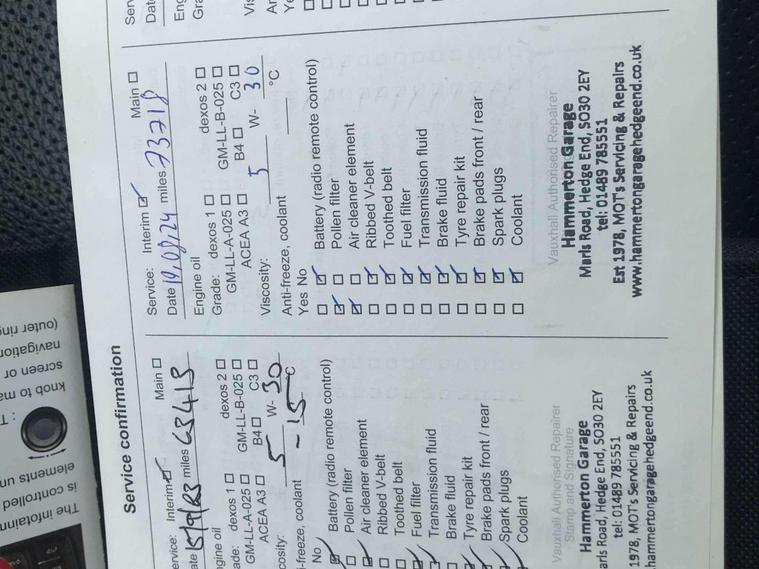 Service confirmation
Service: Interim Main
Date 15/9/23 miles 63413
Engine oil
Grade: dexos 1 dexos 2
GM-LL-A-025 GM-LL-B-025
ACEA A3 B4 C3
Viscosity: 5 W- 30
Anti-freeze, coolant -15 °C
No
Battery (radio remote control)
Pollen filter
Air cleaner element
Ribbed V-belt
Toothed belt
Fuel filter
Transmission fluid
Brake fluid
Tyre repair kit
Brake pads front / rear
Spark plugs
Coolant
Vauxhall Authorised Repairer
Stamp and Signature
Hammerton Garage
arls Road, Hedge End, SO30 2EY
tel: 01489 785551
1978, MOT's Servicing & Repairs
.hammertongaragehedgeend.co.uk
Service: Interim Main
Date 19/08/24 miles 73718
Engine oil
Grade: dexos 1 dexos 2
GM-LL-A-025 GM-LL-B-025
ACEA A3 B4 C3
Viscosity: 5 W- 30
Anti-freeze, coolant °C
Yes No
Battery (radio remote control)
Pollen filter
Air cleaner element
Ribbed V-belt
Toothed belt
Fuel filter
Transmission fluid
Brake fluid
Tyre repair kit
Brake pads front / rear
Spark plugs
Coolant
Vauxhall Authorised Repairer
Hammerton Garage
Marls Road, Hedge End, SO30 2EY
tel: 01489 785551
Est 1978, MOT's Servicing & Repairs
www.hammertongaragehedgeend.co.uk
The infotainm
is controlled
elements un
knob to ma
screen or
navigation
(outer ring